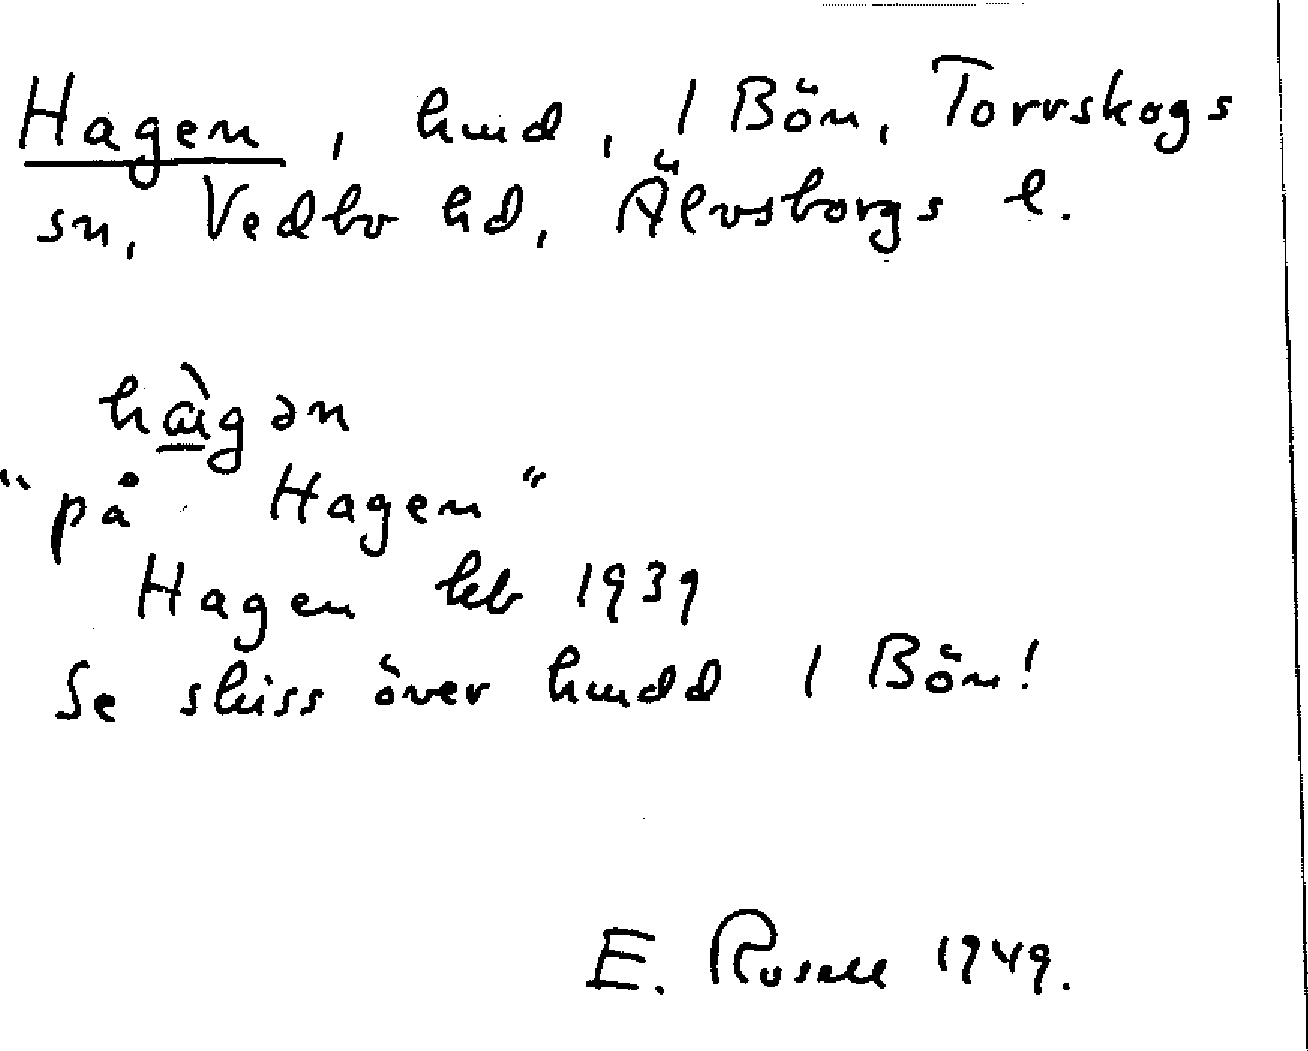 Hagen, hmd, 1 Bön, Torrskogs
sn, Vedbo hd, Älvsborgs l.
hàgən
"på Hagen"
Hagen kb 1939
Se skiss över hmdd 1 Bön!
E. Rosell 1949.